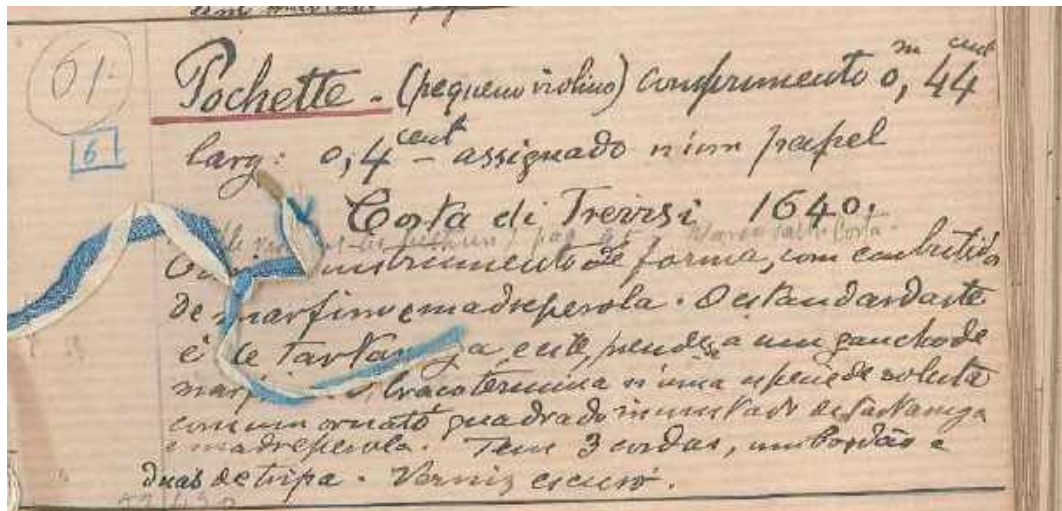 61.
6
Pochette - (pequeno violino) comprimento 0,44 m cent
larg: 0,4 cent - assignado n'um papel
Costa di Trevisi 1640.
pag.
instrumento de forma, com embutidos
de marfim e madreperola. O estandarte
é de tartaruga, este prende-se a um gancho de
O braço termina n'uma especie de voluta
com um ornato quadrado incrustado de tartaruga
e madreperola. Tem 3 cordas, um bordão e
duas de tripa. Verniz escuro.